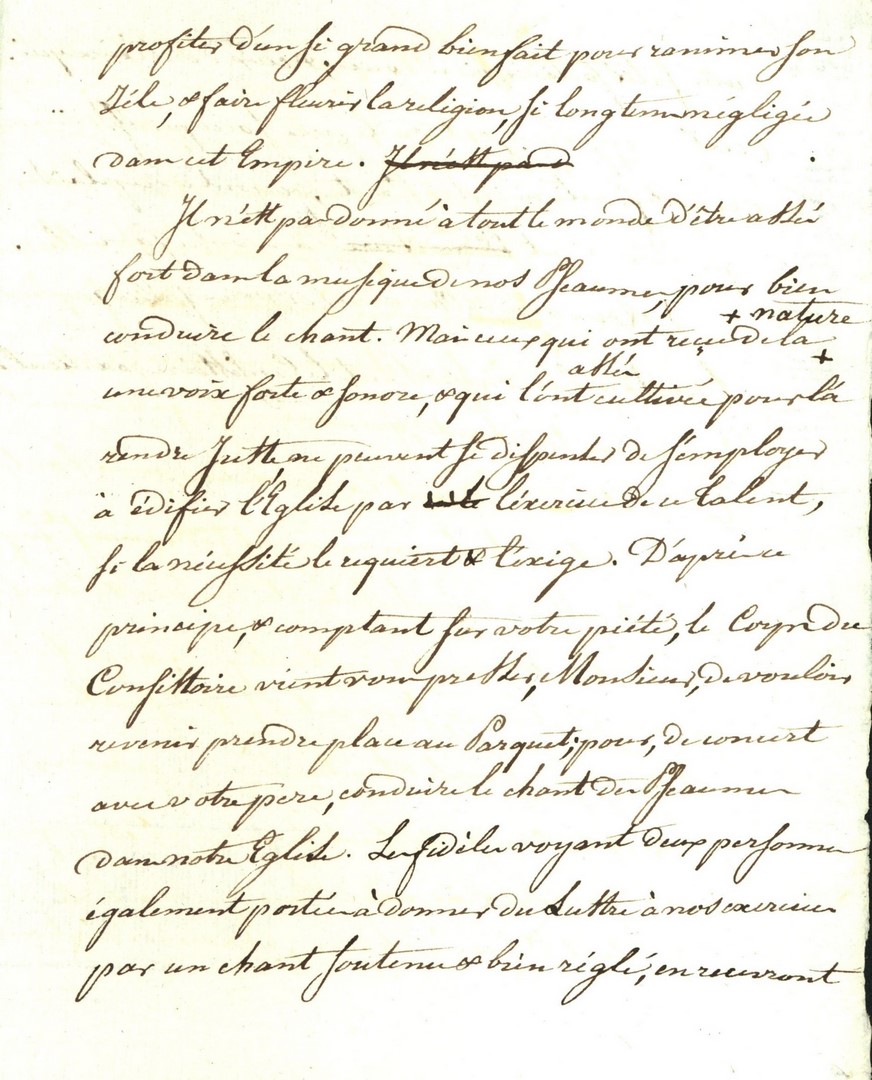 profiter d'un si grand bienfait pour ranimer son
Zéle, & faire fleurir la religion, si longtems négligée
dans cet Empire. Il n'est pas d
Il n'est pas donné à tout le monde d'être assés
fort dans la musique de nos Pseaumes, pour bien
+ nature
conduire le chant. Mais ceux qui ont reçue de la +
assés
une voix forte & sonore, & qui l'ont cultivée pour la
rendre Juste, ne peuvent se dispenser de s'employer
à édifier l'Eglise par l'éxercice de ce talent,
si la nécessité le requiert & l'éxige. D'après ce
principe, & comptant sur votre piété, le Corps du
Consistoire vient vous presser, Monsieur, de vouloir
revenir prendre place au Parquet, pour, de concert
avec votre pere, conduire le chant des Pseaumes
dans notre Eglise. Les fidèles voyant deux personnes
également portées à donner du Lustre à nos exercices
par un chant soutenu & bien réglé, en recevront